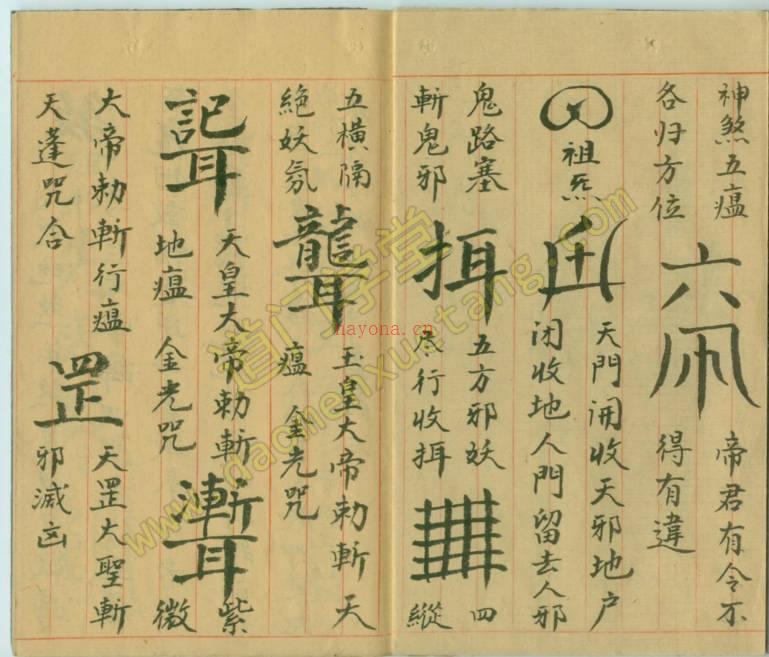 神煞五瘟
各归方位
帝君有令不
得有違
祖炁
天門開收天邪地户
闭收地人門留去人邪
鬼路塞
斬鬼邪
五方邪妖
尽行收
四
縱
五横隔
絶妖氛
玉皇大帝勅斬天
瘟 金光咒
天皇大帝勅斬
地瘟 金光咒
紫
微
大帝勅斬行瘟
天蓬咒合
罡
天罡大聖斬
邪滅凶
道门学堂
www.daomenxuetang.com
hayona.cn